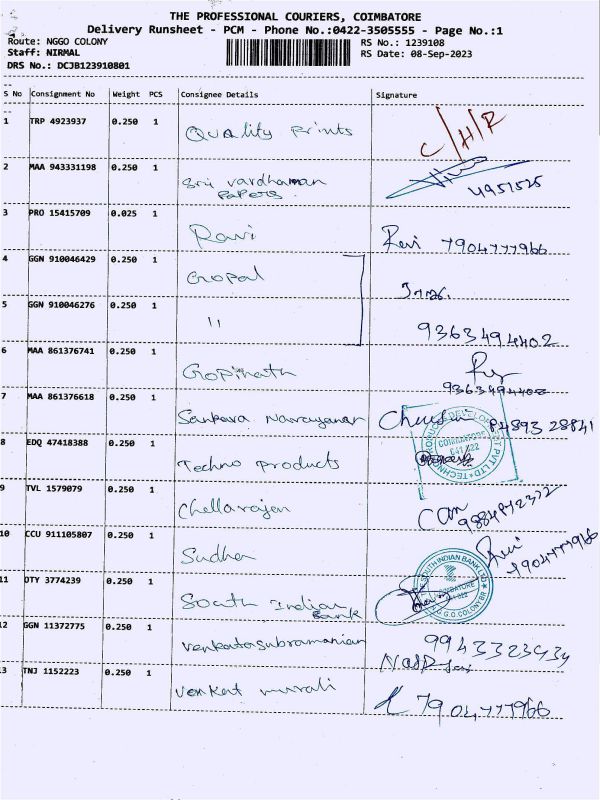 THE PROFESSIONAL COURIERS, COIMBATORE
Delivery Runsheet - PCM - Phone No.:0422-3505555 - Page No.:1
Route: NGGO COLONY RS No.: 1239108
Staff: NIRMAL RS Date: 08-Sep-2023
DRS No.: DCJB123910801
S No Consignment No Weight PCS Consignee Details Signature
1 TRP 4923937 0.250 1 Quality Prints C/H/R
2 MAA 943331198 0.250 1 Sri vardhaman
Papers. 4951525
3 PRO 15415709 0.025 1 Ravi Ravi 7904777966
4 GGN 910046429 0.250 1 Gopal
5 GGN 910046276 0.250 1 " 9363494402
6 MAA 861376741 0.250 1 Gopinath
9363494402
7 MAA 861376618 0.250 1 Sankara Narayanan 84893 28841
8 EDQ 47418388 0.250 1 Techno Products
COIMBATORE
641 022
9 TVL 1579079 0.250 1 Chellarajen
10 CCU 911105807 0.250 1 Sudha Ravi 7904777966
11 OTY 3774239 0.250 1 South Indian
Bank
SOUTH INDIAN BANK LTD
COIMBATORE
N.G.G.O.COLONY BR
12 GGN 11372775 0.250 1 Venkatasubramanian 9943323434
13 TNJ 1152223 0.250 1 Venkat murali 7904777966